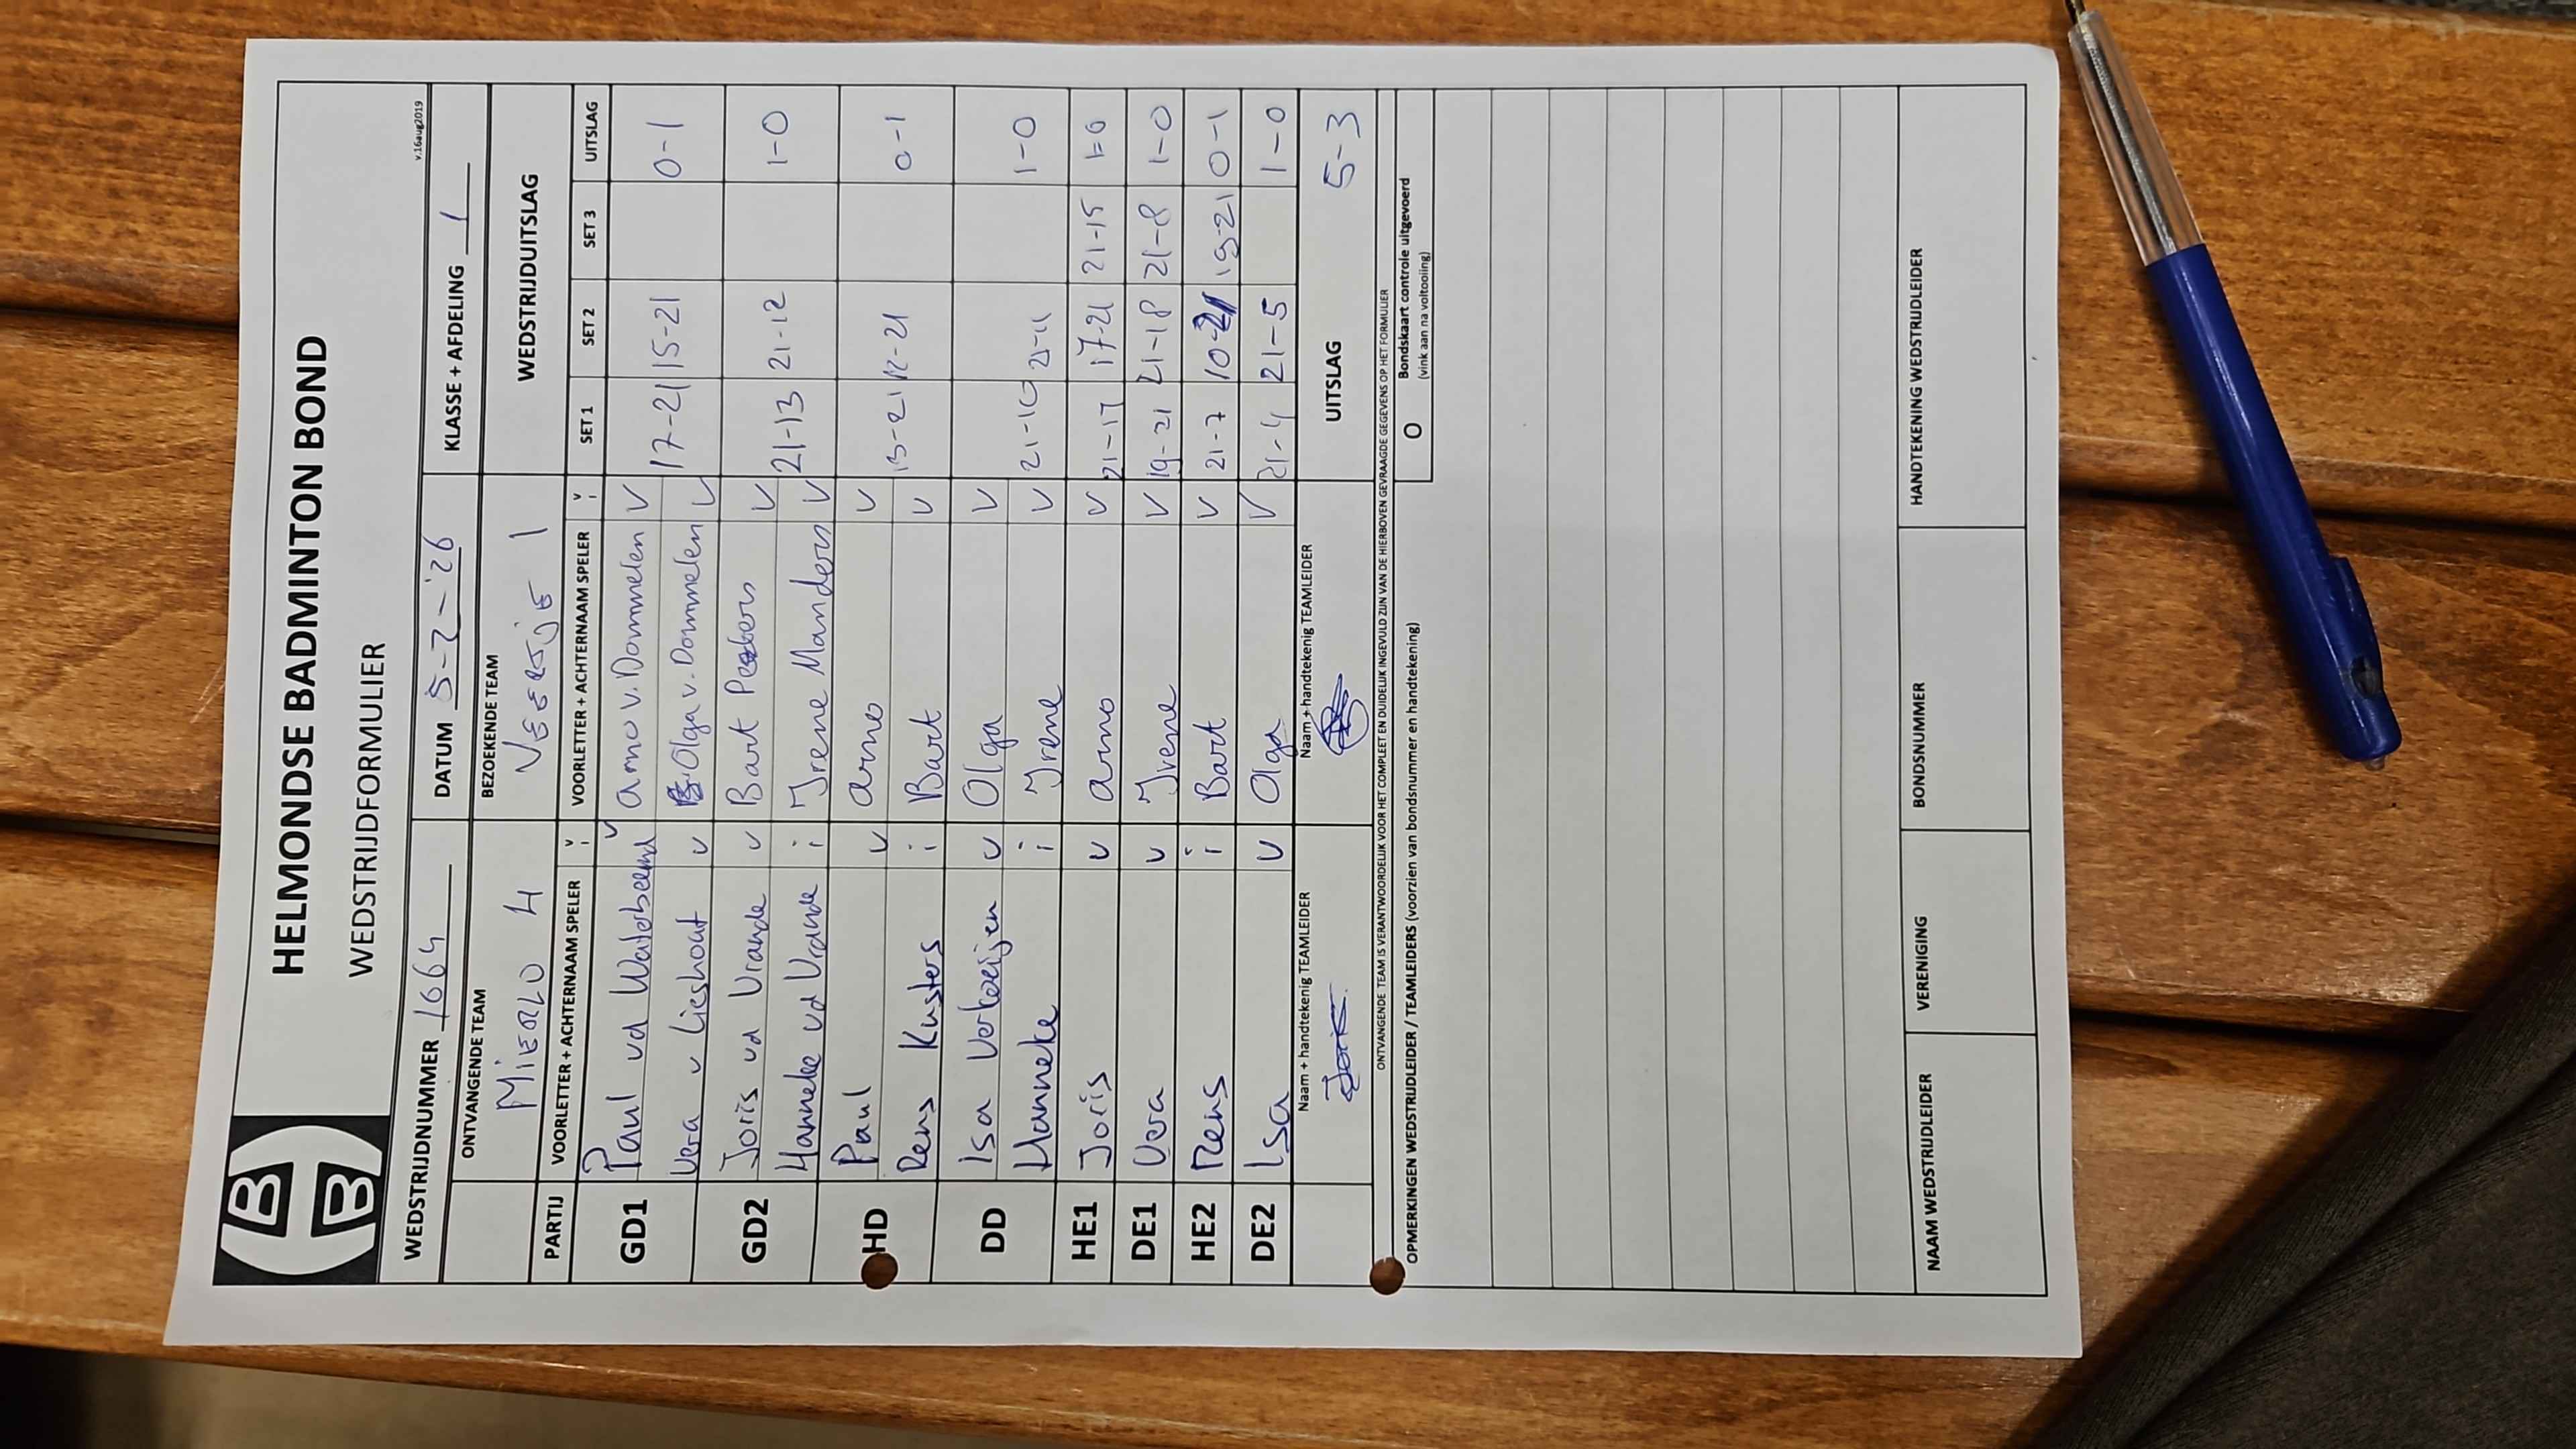 HELMONDSE BADMINTON BOND
WEDSTRIJDFORMULIER
v.16aug2019
WEDSTRIJDNUMMER 1664 DATUM 5-2-'26 KLASSE + AFDELING 1
ONTVANGENDE TEAM BEZOEKENDE TEAM WEDSTRIJDUITSLAG
MIERLO 4 VEERSJE 1
PARTIJ VOORLETTER + ACHTERNAAM SPELER v i VOORLETTER + ACHTERNAAM SPELER v i SET 1 SET 2 SET 3 UITSLAG
GD1 Paul vd Waterbeemd v Arno v. Dommelen v 17-21 15-21 0-1
Vera v Lieshout v Olga v. Dommelen v
GD2 Joris vd Vrande v Bart Peeters v 21-13 21-12 1-0
Hanneke vd Vrande i Irene Manders v
HD Paul v Arno v 15-21 12-21 0-1
Rens Kusters i Bart v
DD Isa Verberijen v Olga v 21-10 1-0
Hanneke i Irene v
HE1 Joris v Arno v 21-17 17-21 21-15 1-0
DE1 Vera v Irene v 19-21 21-18 21-8 1-0
HE2 Rens i Bart v 21-7 10-21 19-21 0-1
DE2 Isa v Olga v 21-4 21-5 1-0
Naam + handtekenig TEAMLEIDER Naam + handtekenig TEAMLEIDER UITSLAG 5-3
Joris
ONTVANGENDE TEAM IS VERANTWOORDELIJK VOOR HET COMPLEET EN DUIDELIJK INGEVULD ZIJN VAN DE HIERBOVEN GEVRAAGDE GEGEVENS OP HET FORMULIER
OPMERKINGEN WEDSTRIJDLEIDER / TEAMLEIDERS (voorzien van bondsnummer en handtekening) O Bondskaart controle uitgevoerd
(vink aan na voltooiing)
NAAM WEDSTRIJDLEIDER VERENIGING BONDSNUMMER HANDTEKENING WEDSTRIJDLEIDER